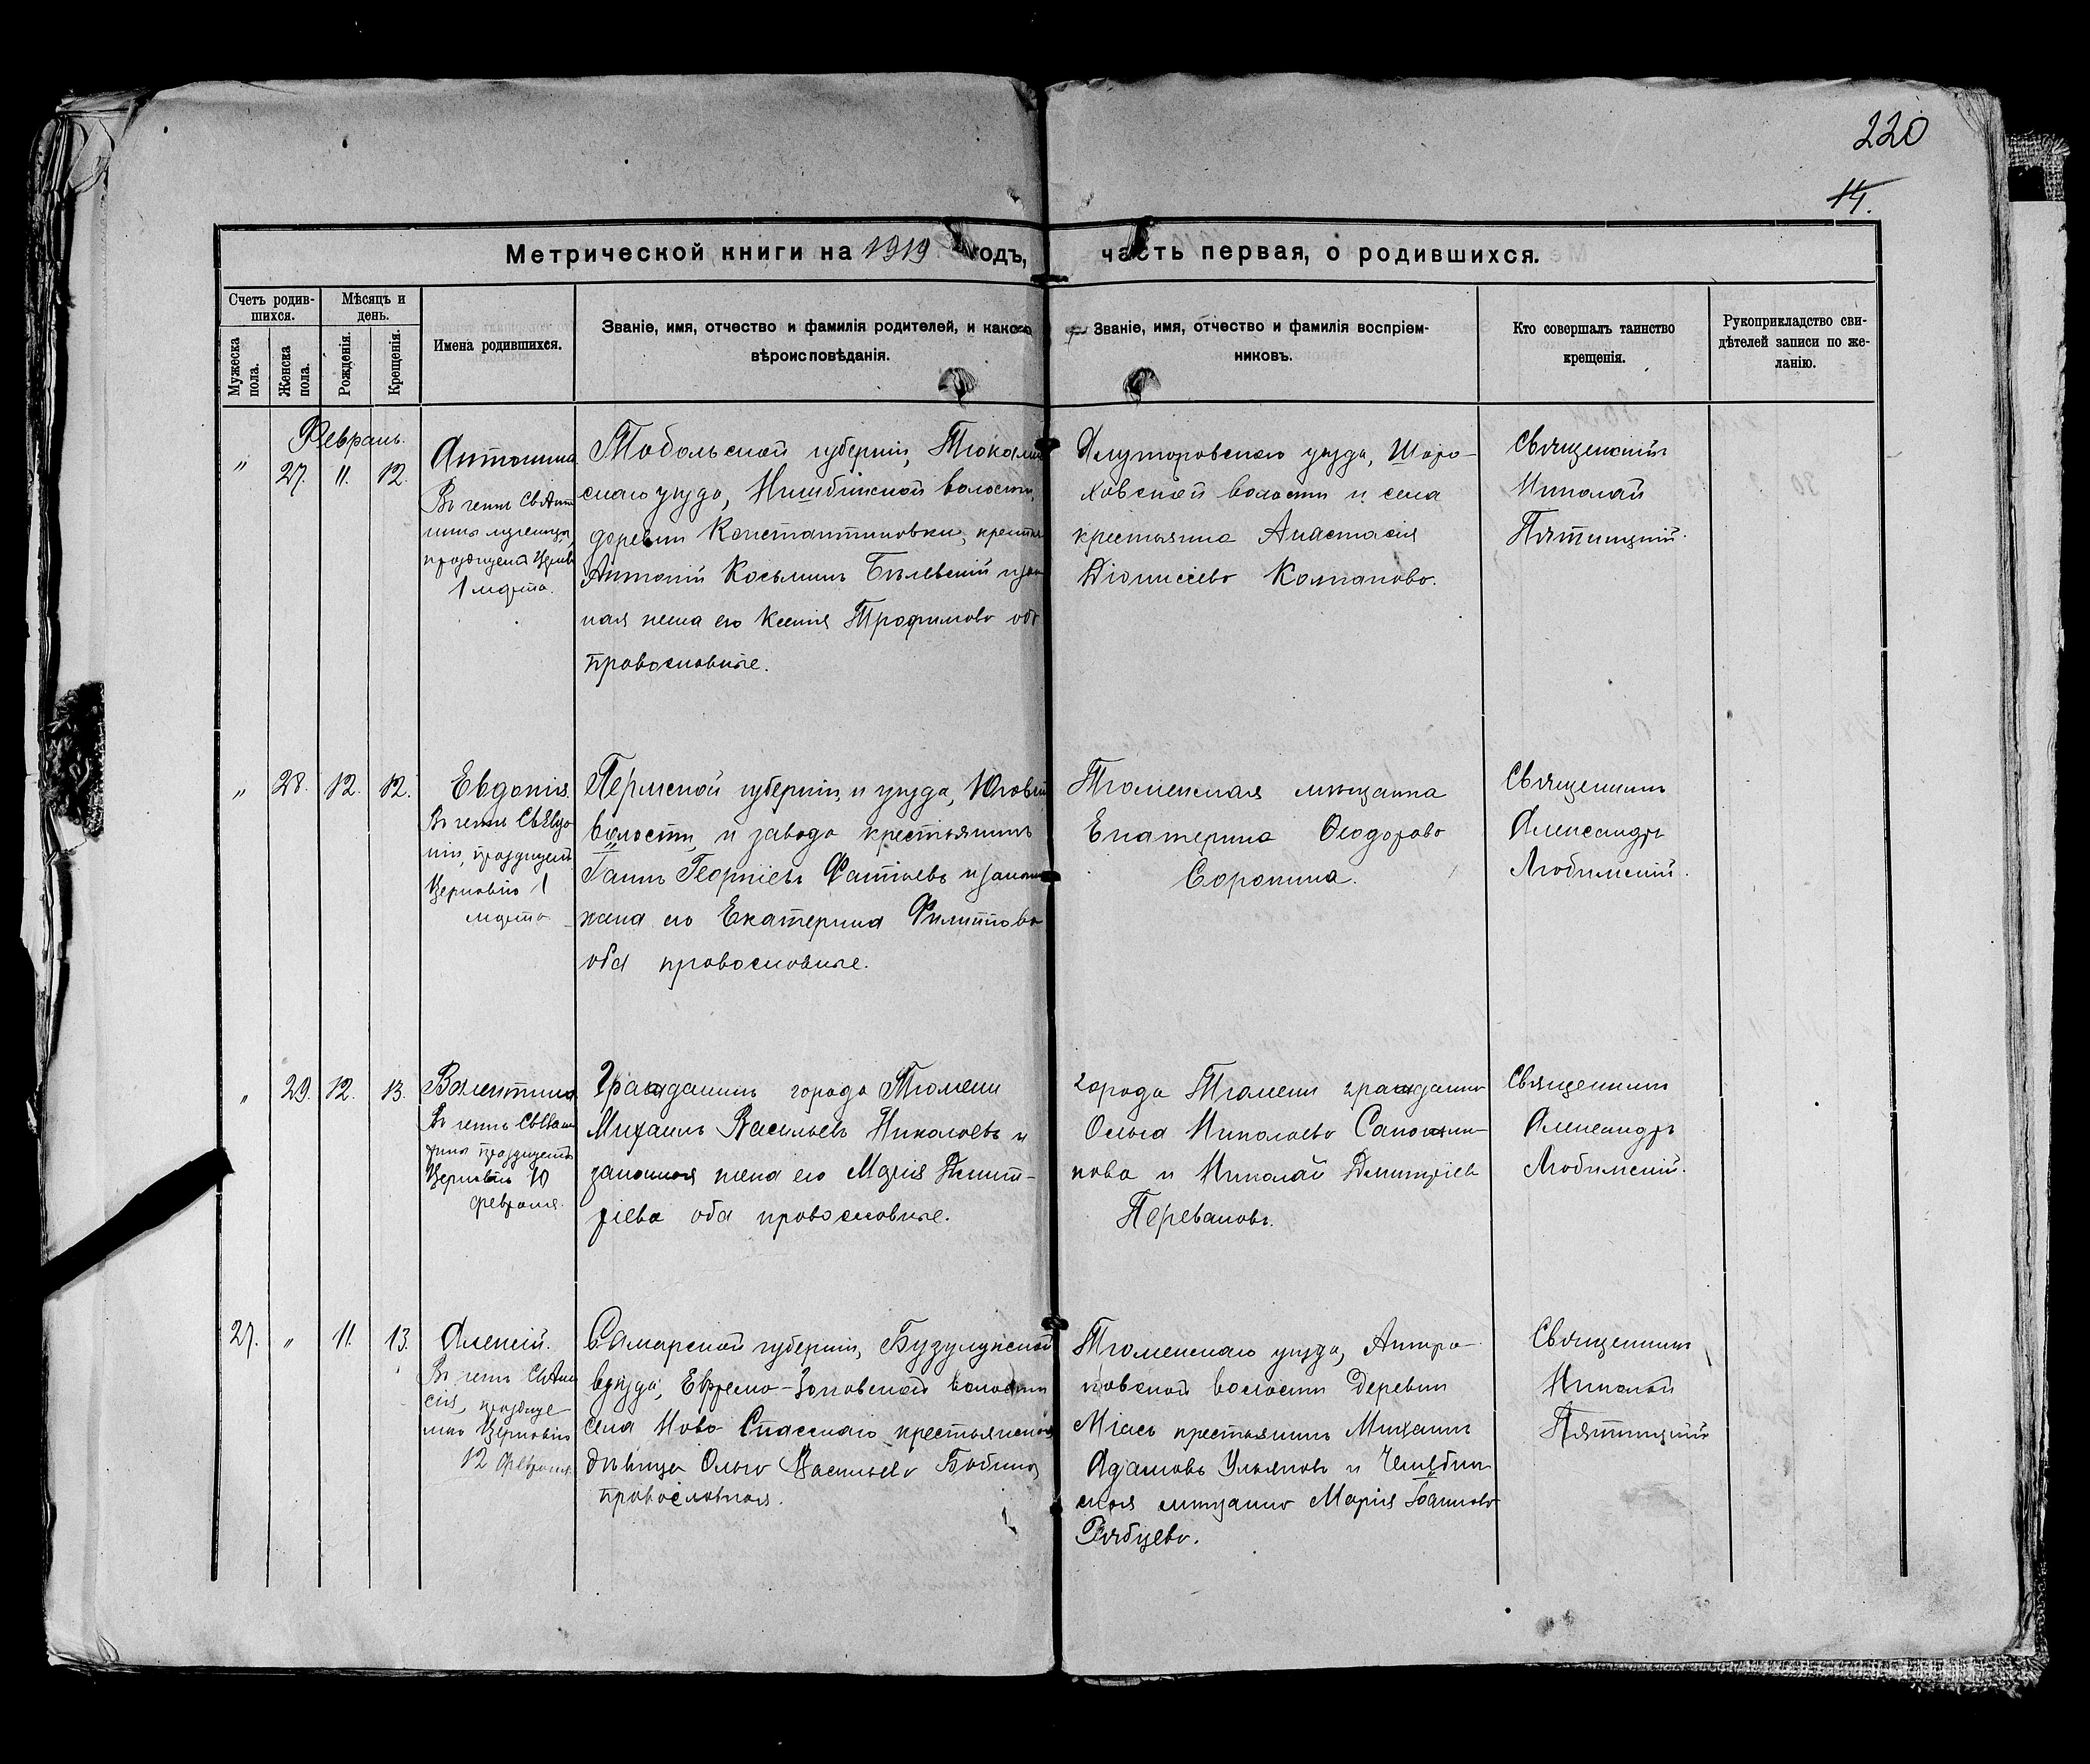 220
14.
Метрической книги на 1919 годъ, часть первая, о родившихся.
Счетъ родив-
шихся.
Мѣсяцъ и
день.
Мужеска
пола.
Женска
пола.
Рожденія.
Крещенія.
Имена родившихся.
Званіе, имя, отчество и фамилія родителей, и какого
вѣроисповѣданія.
Званіе, имя, отчество и фамилія воспріем-
никовъ.
Кто совершалъ таинство
крещенія.
Рукоприкладство сви-
дѣтелей записи по же-
ланію.
Февраль.
" 27. 11. 12.
Антонина
Въ честь Св Анто
нины мученицы,
празднуемой Церков
1 марта.
Тобольской губерніи, Тюкалин
скаго уѣзда, волости,
деревни Константиновки, крестья
Антоній Косьминъ Бѣлевскій и зако
ная жена его Ксенія Трофимова оба
православные.
Ялуторовскаго уѣзда, Шоро-
ховской волости и села
крестьянка Анастасія
Діонисіева Колпакова.
Священникъ
Николай
Пятницкій.
" 28. 12. 12.
Евдокія.
Въ честь Св Евдо
кіи, празднуемой
Церковію 1
марта
Пермской губерніи, и уѣзда, Юговской
волости, и завода крестьянинъ
Іоаннъ Георгіевъ Фатѣевъ и законн
жена его Екатерина Филиппова
оба православные.
Тюменская мѣщанка
Екатерина Ѳеодорова
Сорокина.
Священникъ
Александръ
Любимскій.
" 29. 12. 13.
Валентина
Въ честь Св Вален
тины празднуемой
Церковію 10
февраля.
Гражданинъ города Тюмени
Михаилъ Васильевъ Николаевъ и
законная жена его Марія Димит-
ріева оба православные.
города Тюмени гражданка
Ольга Николаева Сапожни-
кова и Николай Димитріевъ
Переваловъ.
Священникъ
Александръ
Любимскій.
27. " 11. 13.
Алексій.
Въ честь Св Алек
сія, празднуе
маго Церковію
12 Февраля.
Самарской губерніи, Бузулукской
уѣзда, Ефремо-Зыковской волости
села Ново Спасскаго крестьянская
дѣвица Ольга Васильева Бабина,
православная.
Тюменскаго уѣзда, Антро-
повской волости деревни
Міасъ крестьянинъ Михаилъ
Адамовъ Ульяновъ и Челябин
ская мѣщанка Марія Іоаннова
Рябцева.
Священникъ
Николай
Пятницкій